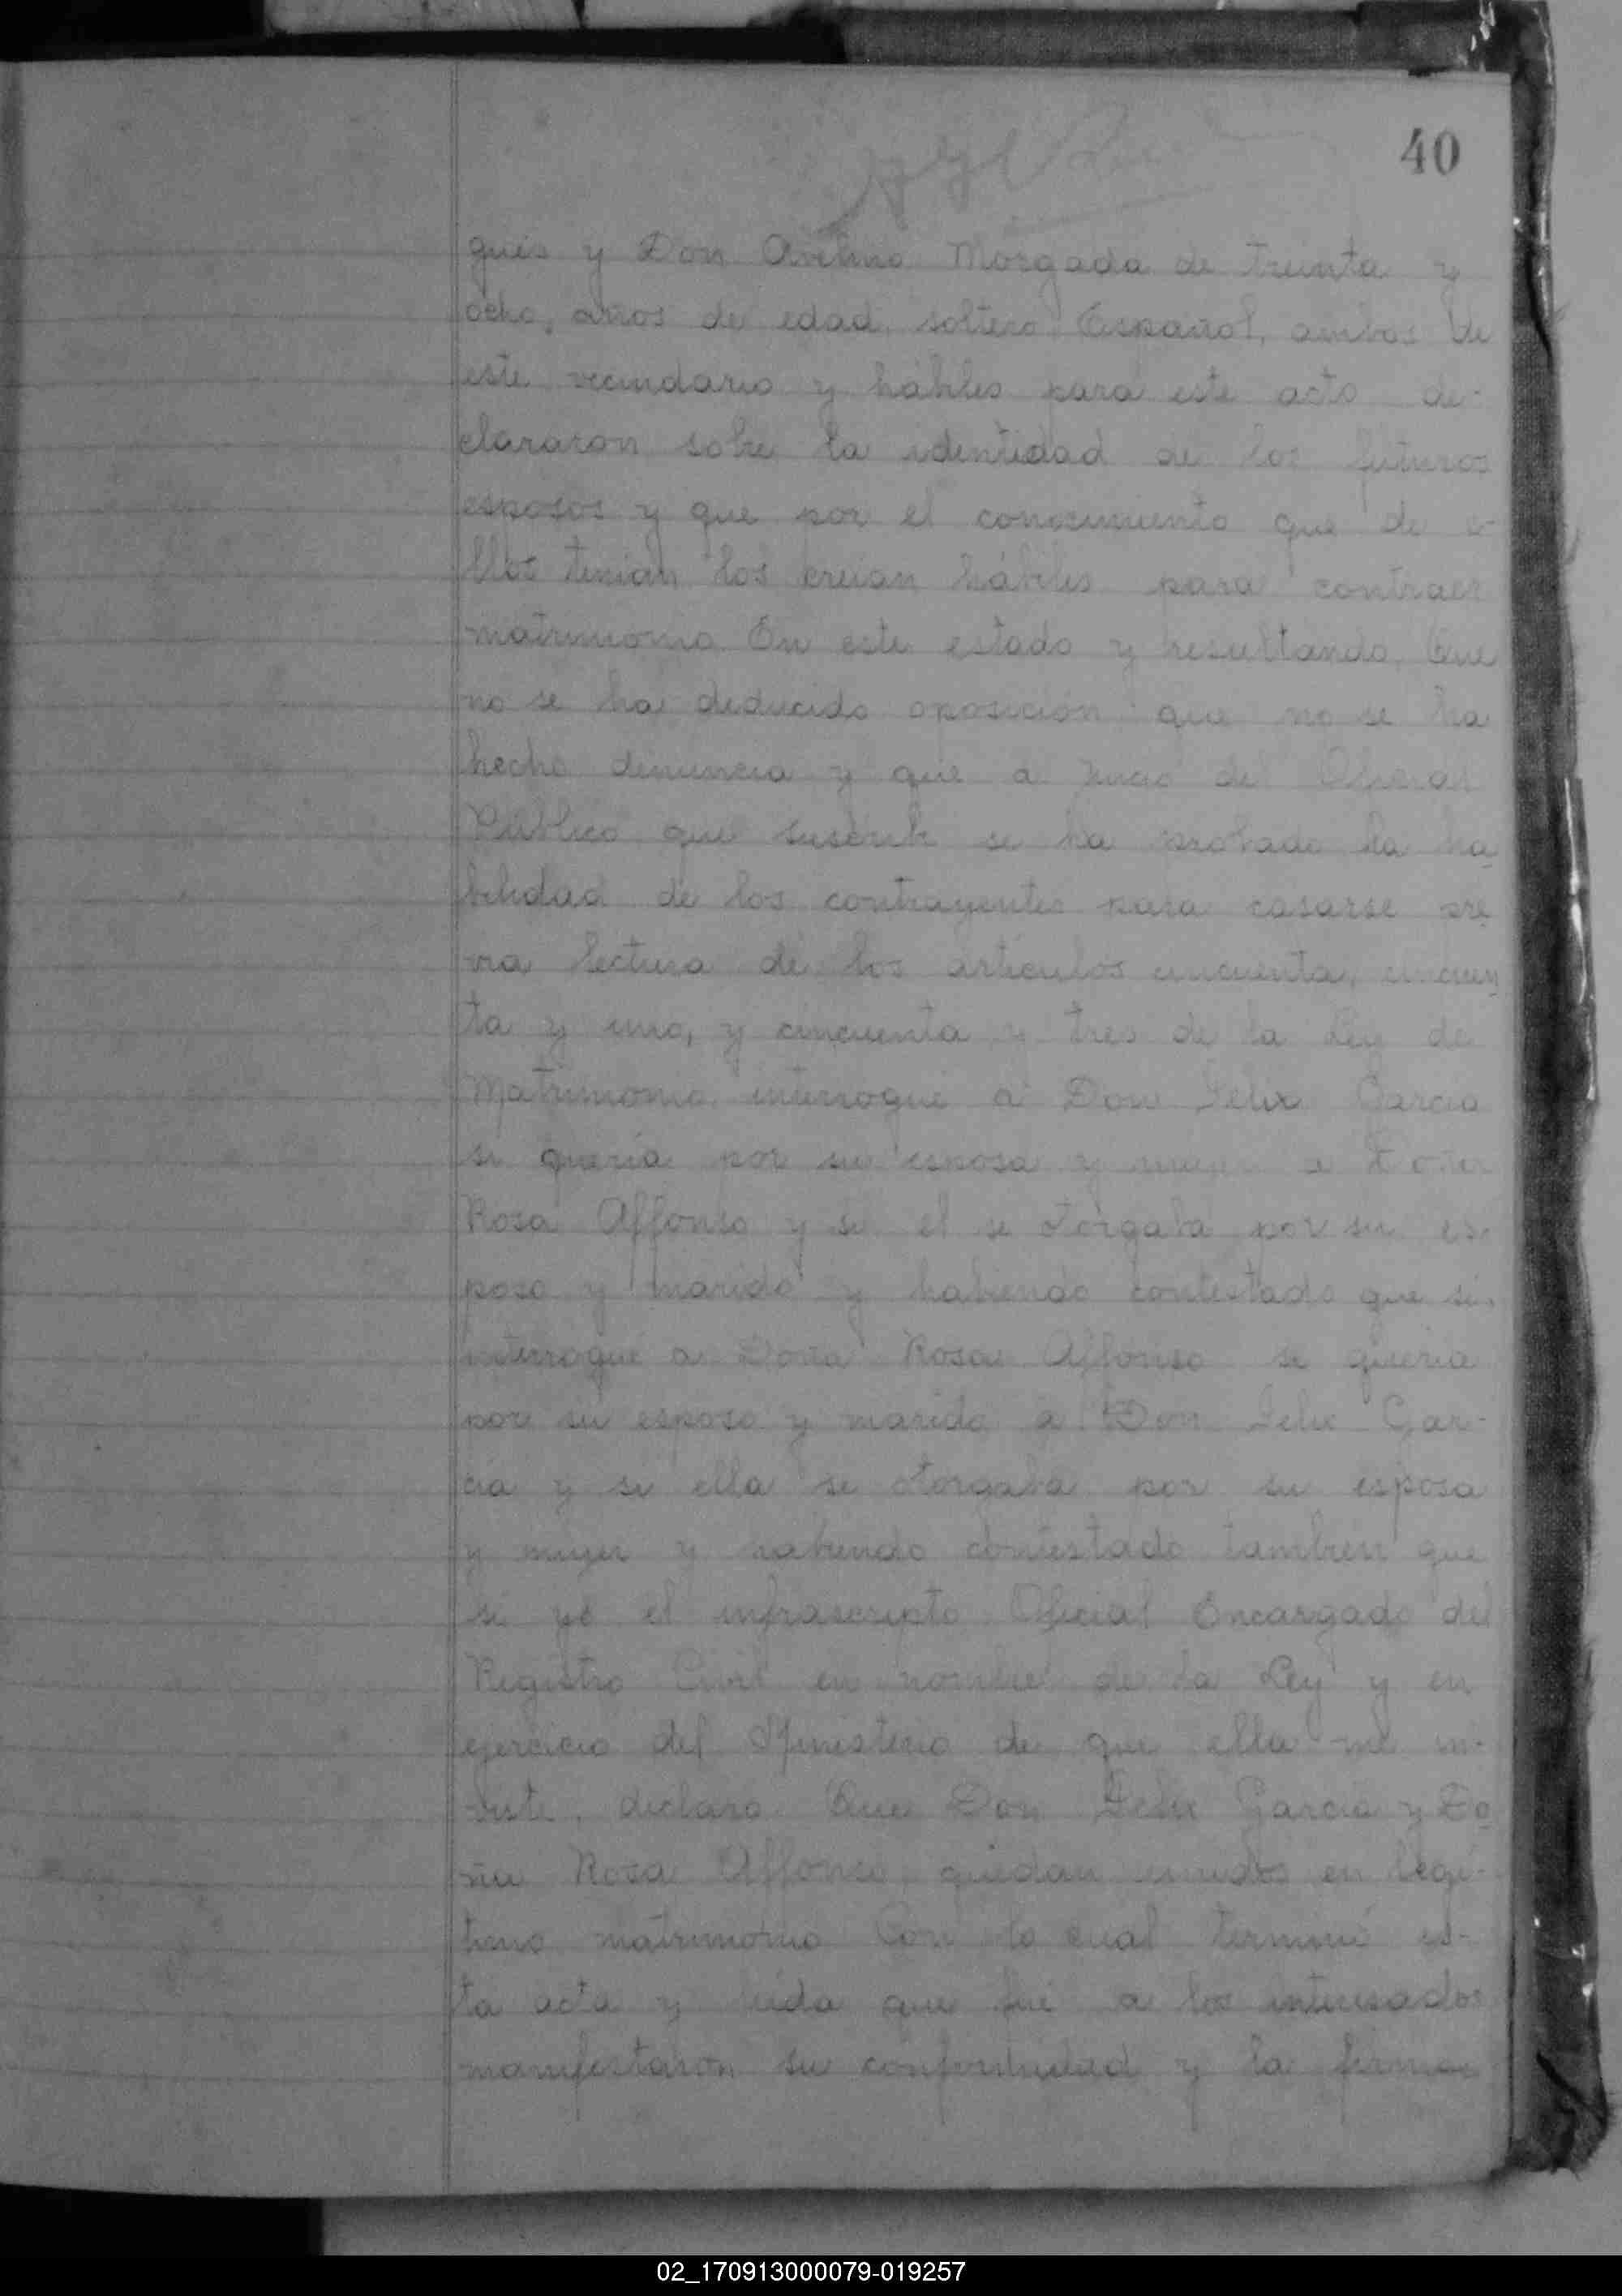 40
gués y Don Avelino Morgada de treinta y
ocho, años de edad, soltero Español, ambos de
este vecindario y hábiles para este acto de-
clararon sobre la identidad de los futuros
esposos y que por el conocimiento que de e-
llos tenian los creian hábiles para contraer
matrimonio. En este estado y resultando Que
no se ha deducido oposición que no se ha
hecho denuncia y que a juicio del Oficial
Público que suscribe se ha probado la ha
bilidad de los contrayentes para casarse pre
via lectura de los articulos cincuenta, cincuen
ta y uno, y cincuenta y tres de la Ley de
Matrimonio interrogué a Don Felix Garcia
si queria por su esposa y mujer a Doña
Rosa Affonso y si el se otorgaba por su es-
poso y marido y habiendo contestado que si,
interrogué a Doña Rosa Affonso si queria
por su esposo y marido a Don Felix Gar-
cia y si ella se otorgaba por su esposa
y mujer y habiendo contestado tambien que
si yo el infrascripto Oficial Encargado del
Registro Civil en nombre de la Ley y en
ejercicio del Ministerio de que ella me in-
viste, declaro Que Don Felix Garcia y Do
ña Rosa Affonso quedan unidos en legi-
timo matrimonio Con lo cual terminó es-
ta acta y leida que fué a los interesados
manifestaron su conformidad y la firman
02_170913000079-019257